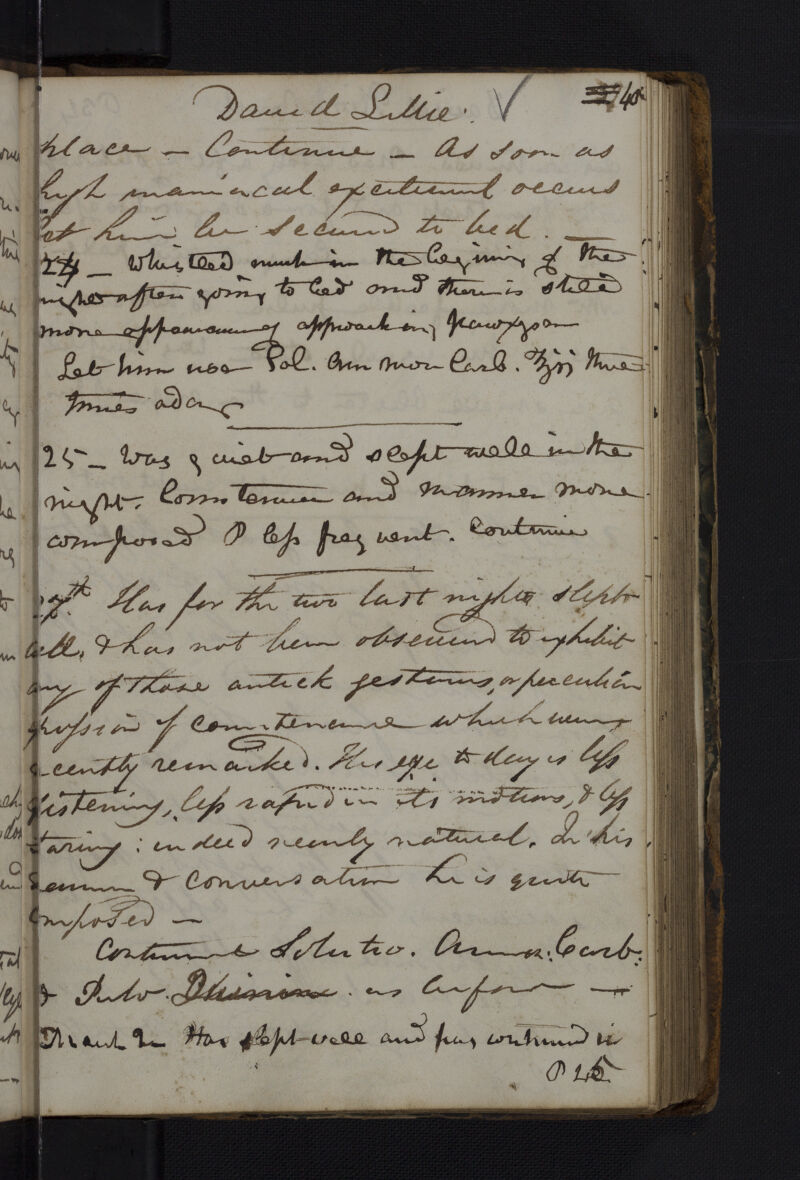 David Lillie. √ 40
place – Continue – As soon as
high maniacal excitement occurs
let him be secured to bed. –
24 – Whistled much in the begining of the
night after going to bed and there is still
more appearance of approaching paroxysm
Let him use Sol. Ammon Carb. ℥ij three
times a day
25 – Was quiet and slept well in the
night. Countenance and manner more
composed P less frequent. Continue
27th Has for the two last nights slept
well, & has not been observed to exhibit
any of those antick gestures, or peculiar
expression of countenance which were
recently remarked. His eye to day is less
glistening, less rapid in its motions, & less
staring: indeed nearly natural. In his
demeanour & conversation he is quite
composed –
Continue Solutio. Ammon: Carb:
& Pulv. as before –
March 2 Has slept well and has continued in
P 45